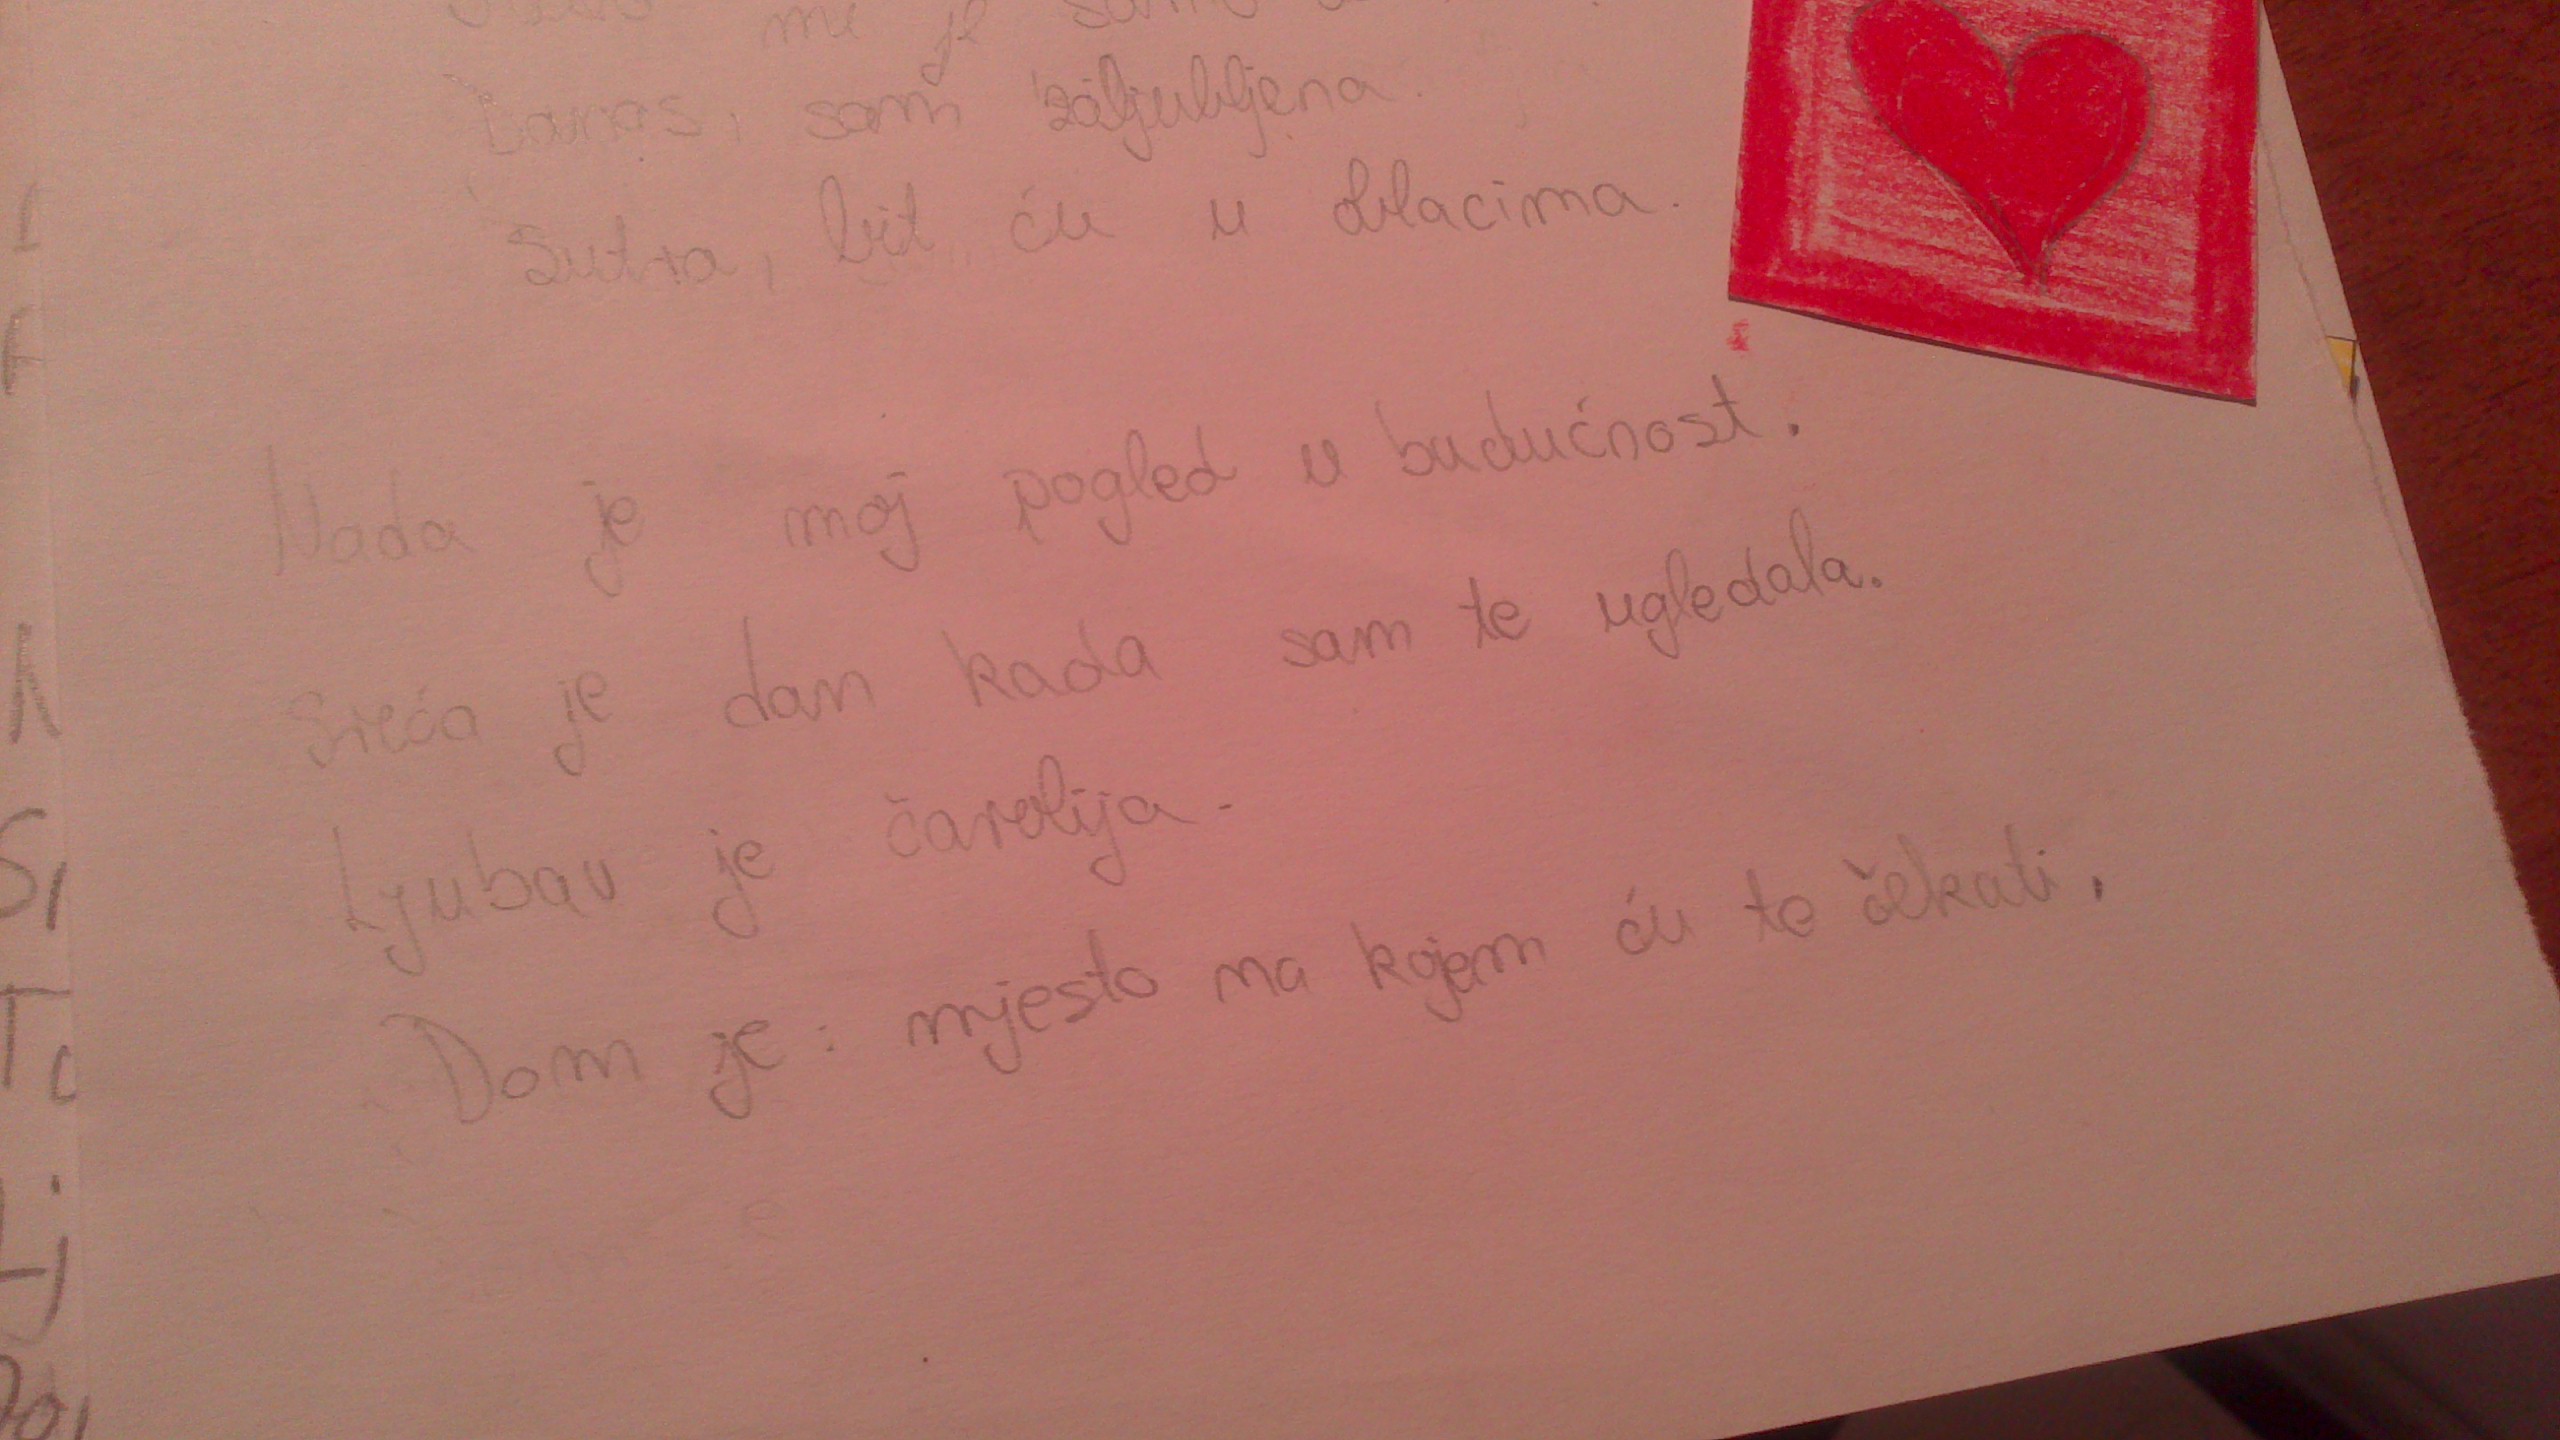 me je
Danas, sam zaljubljena.
Sutra, bit ću u oblacima.
Nada je moj pogled u budućnost.
Sreća je dan kada sam te ugledala.
Ljubav je čarolija.
Dom je: mjesto na kojem ću te čekati.